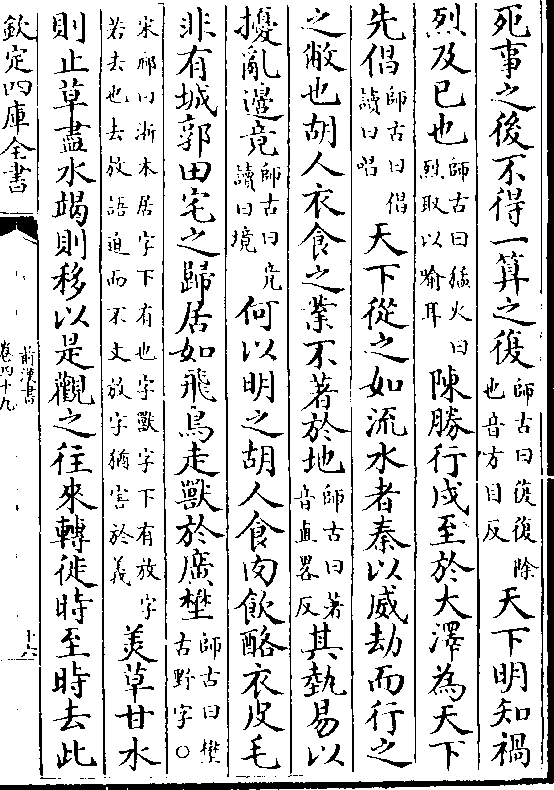 死事之後不得一算之復師古曰復復除也音方目反天下明知禍
烈及已也師古曰猛火曰烈取以喻耳陳勝行戍至於大澤為天下
先倡師古曰倡讀曰唱天下從之如流水者秦以威劫而行之
之敝也胡人衣食之業不著於地師古曰著音直畧反其埶易以
擾亂邉竟師古曰竟讀曰境何以明之胡人食肉飲酪衣皮毛
非有城郭田宅之歸居如飛鳥走獸於廣壄師古曰壄古野字○
宋祁曰浙本居字下有也字獸字下有放字若去也去放語迫而不文放字猶害於義美草甘水
則止草盡水竭則移以是觀之往來轉徙時至時去此
欽定四庫全書
前漢書
卷四十九
十六